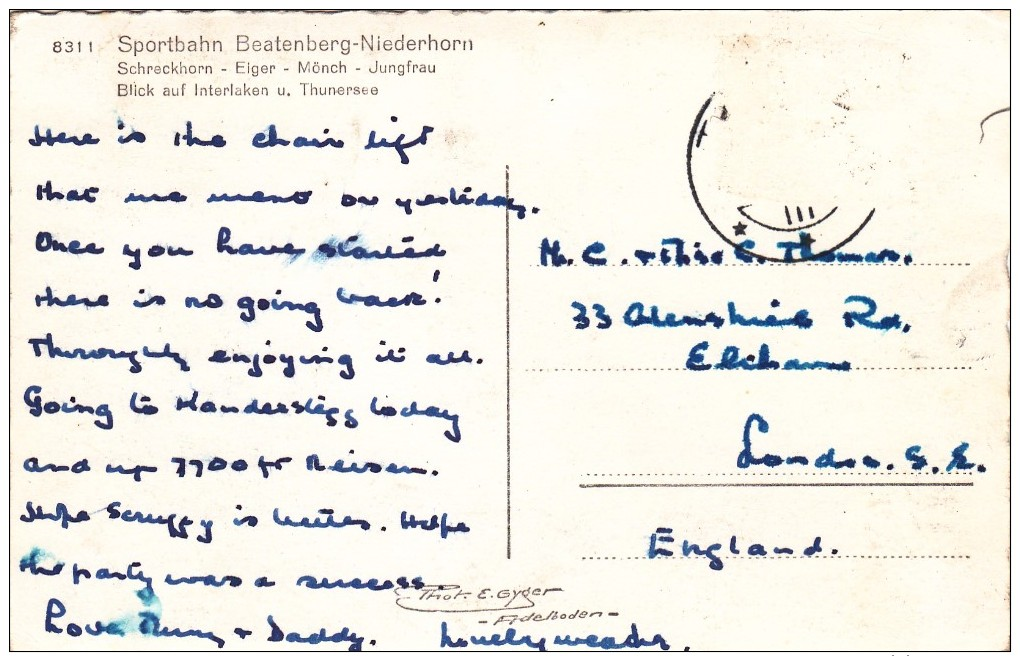 8311 Sportbahn Beatenberg-Niederhorn
Schreckhorn - Eiger - Mönch - Jungfrau
Blick auf Interlaken u. Thunersee
Here is the chair lift
that we went on yesterday.
Once you have started
there is no going back!
Thoroughly enjoying it all.
Going to Kandersteg today
and up 7700 ft
Hope Scruffy is better. Hope
the party was a success.
Love Mummy + Daddy. Lovely weather.
Phot. E. Gyger
- Adelboden -
C. Thomas.
33 Rd.
Eltham
London. S.E.
England.